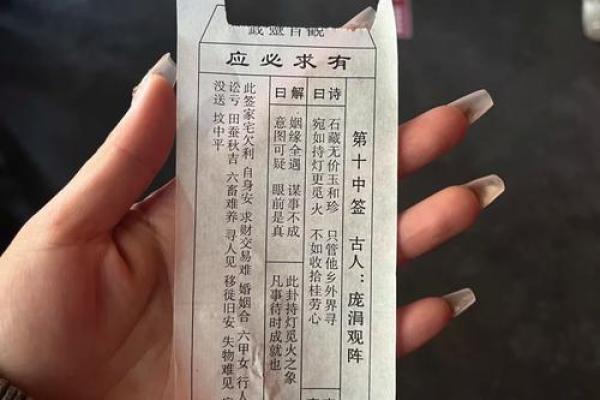 觀音靈籤
有求必应
第十中签 古人：庞涓观阵
诗曰
石藏无价玉和珍 只管他乡外界寻
宛如持灯更觅火 不如收拾桂劳心
解曰
姻缘全遇 谋事不成
意图可疑 眼前是真
此卦持灯觅火之象
凡事待时成就也
此签家宅欠利 自身安 求财交易难 婚姻合 六甲女 行人
讼亏 田蚕秋吉 六畜难养 寻人见 移徙旧安 失物难见
没送 坟中平